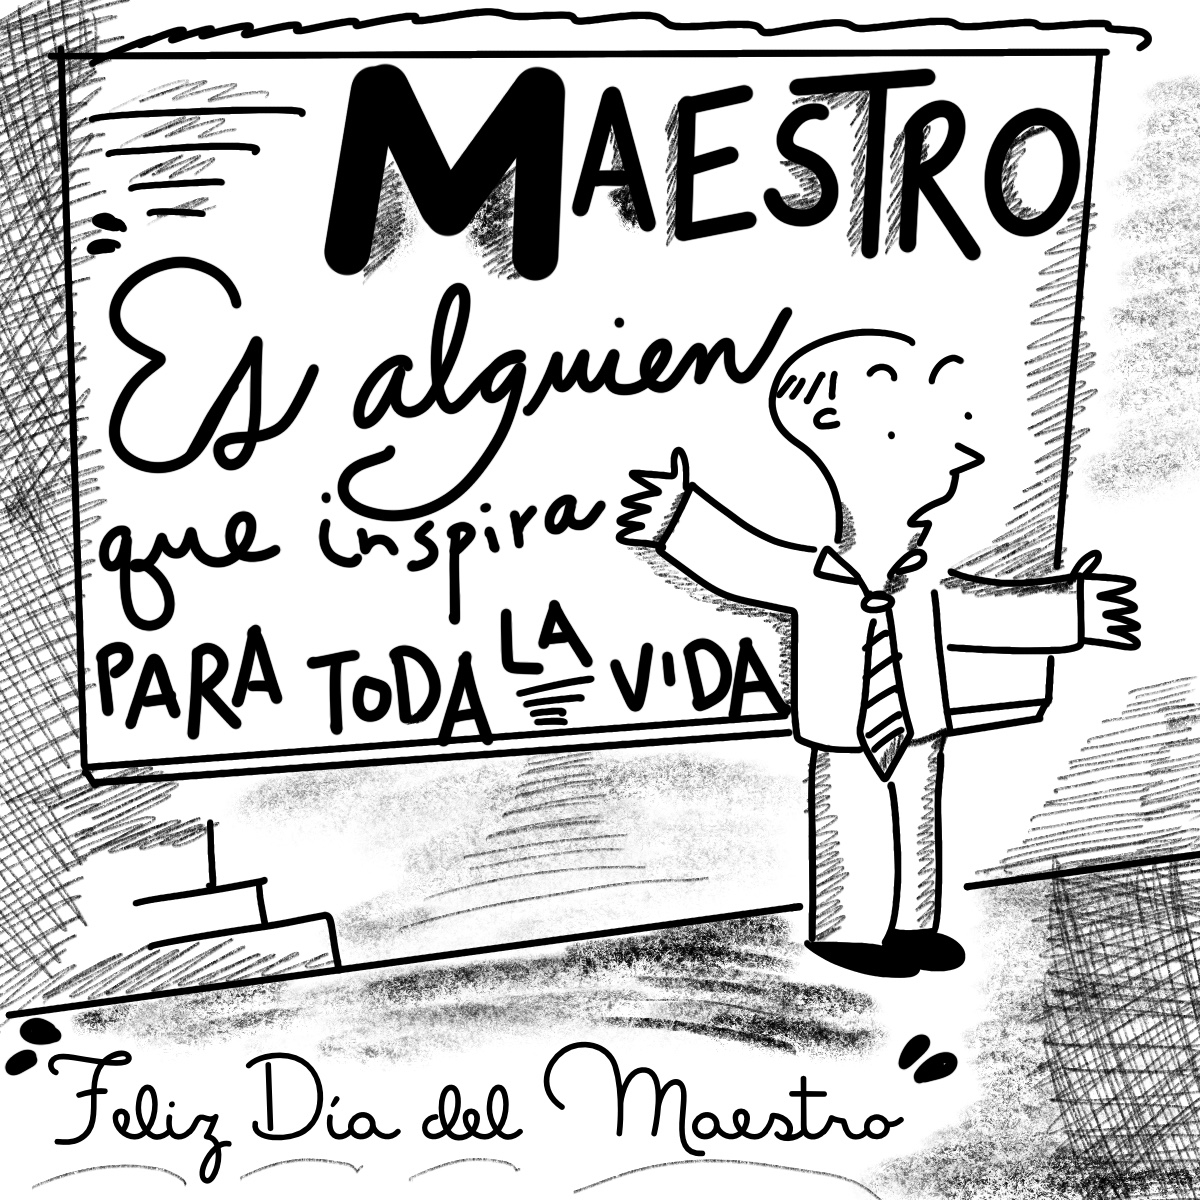 MAESTRO
Es alguien
que inspira
PARA TODA LA VIDA
Feliz Día del Maestro